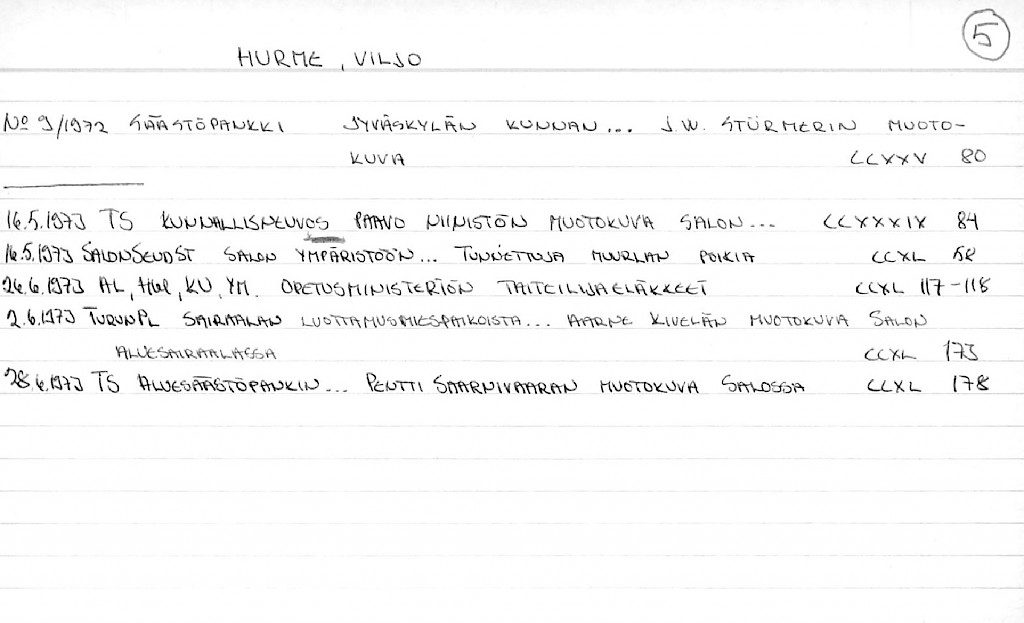 5
HURME, VILJO
No 9/1972 SÄÄSTÖPANKKI JYVÄSKYLÄN KUNNAN... J.W. STÜRMERIN MUOTO-
KUVA CCXXV 80
16.5.1973 TS KUNNALLISNEUVOS PAAVO NIINISTÖN MUOTOKUVA SALON... CCXXXIX 84
16.5.1973 SALONSEUDST SALON YMPÄRISTÖÖN... TUNNETTUJA MUURLAN POIKIA CCXL 58
26.6.1973 AL, HBL, KU, YM. OPETUSMINISTERIÖN TAITEILIJAELÄKKEET CCXL 117-118
2.6.1973 TURUNPL SAIRAALAN LUOTTAMUSMIESPAIKOISTA... AARNE KIVELÄN MUOTOKUVA SALON
ALUESAIRAALASSA CCXL 173
28.6.1973 TS ALUESÄÄSTÖPANKIN... PENTTI SAARNIVAARAN MUOTOKUVA SALOSSA CCXL 178